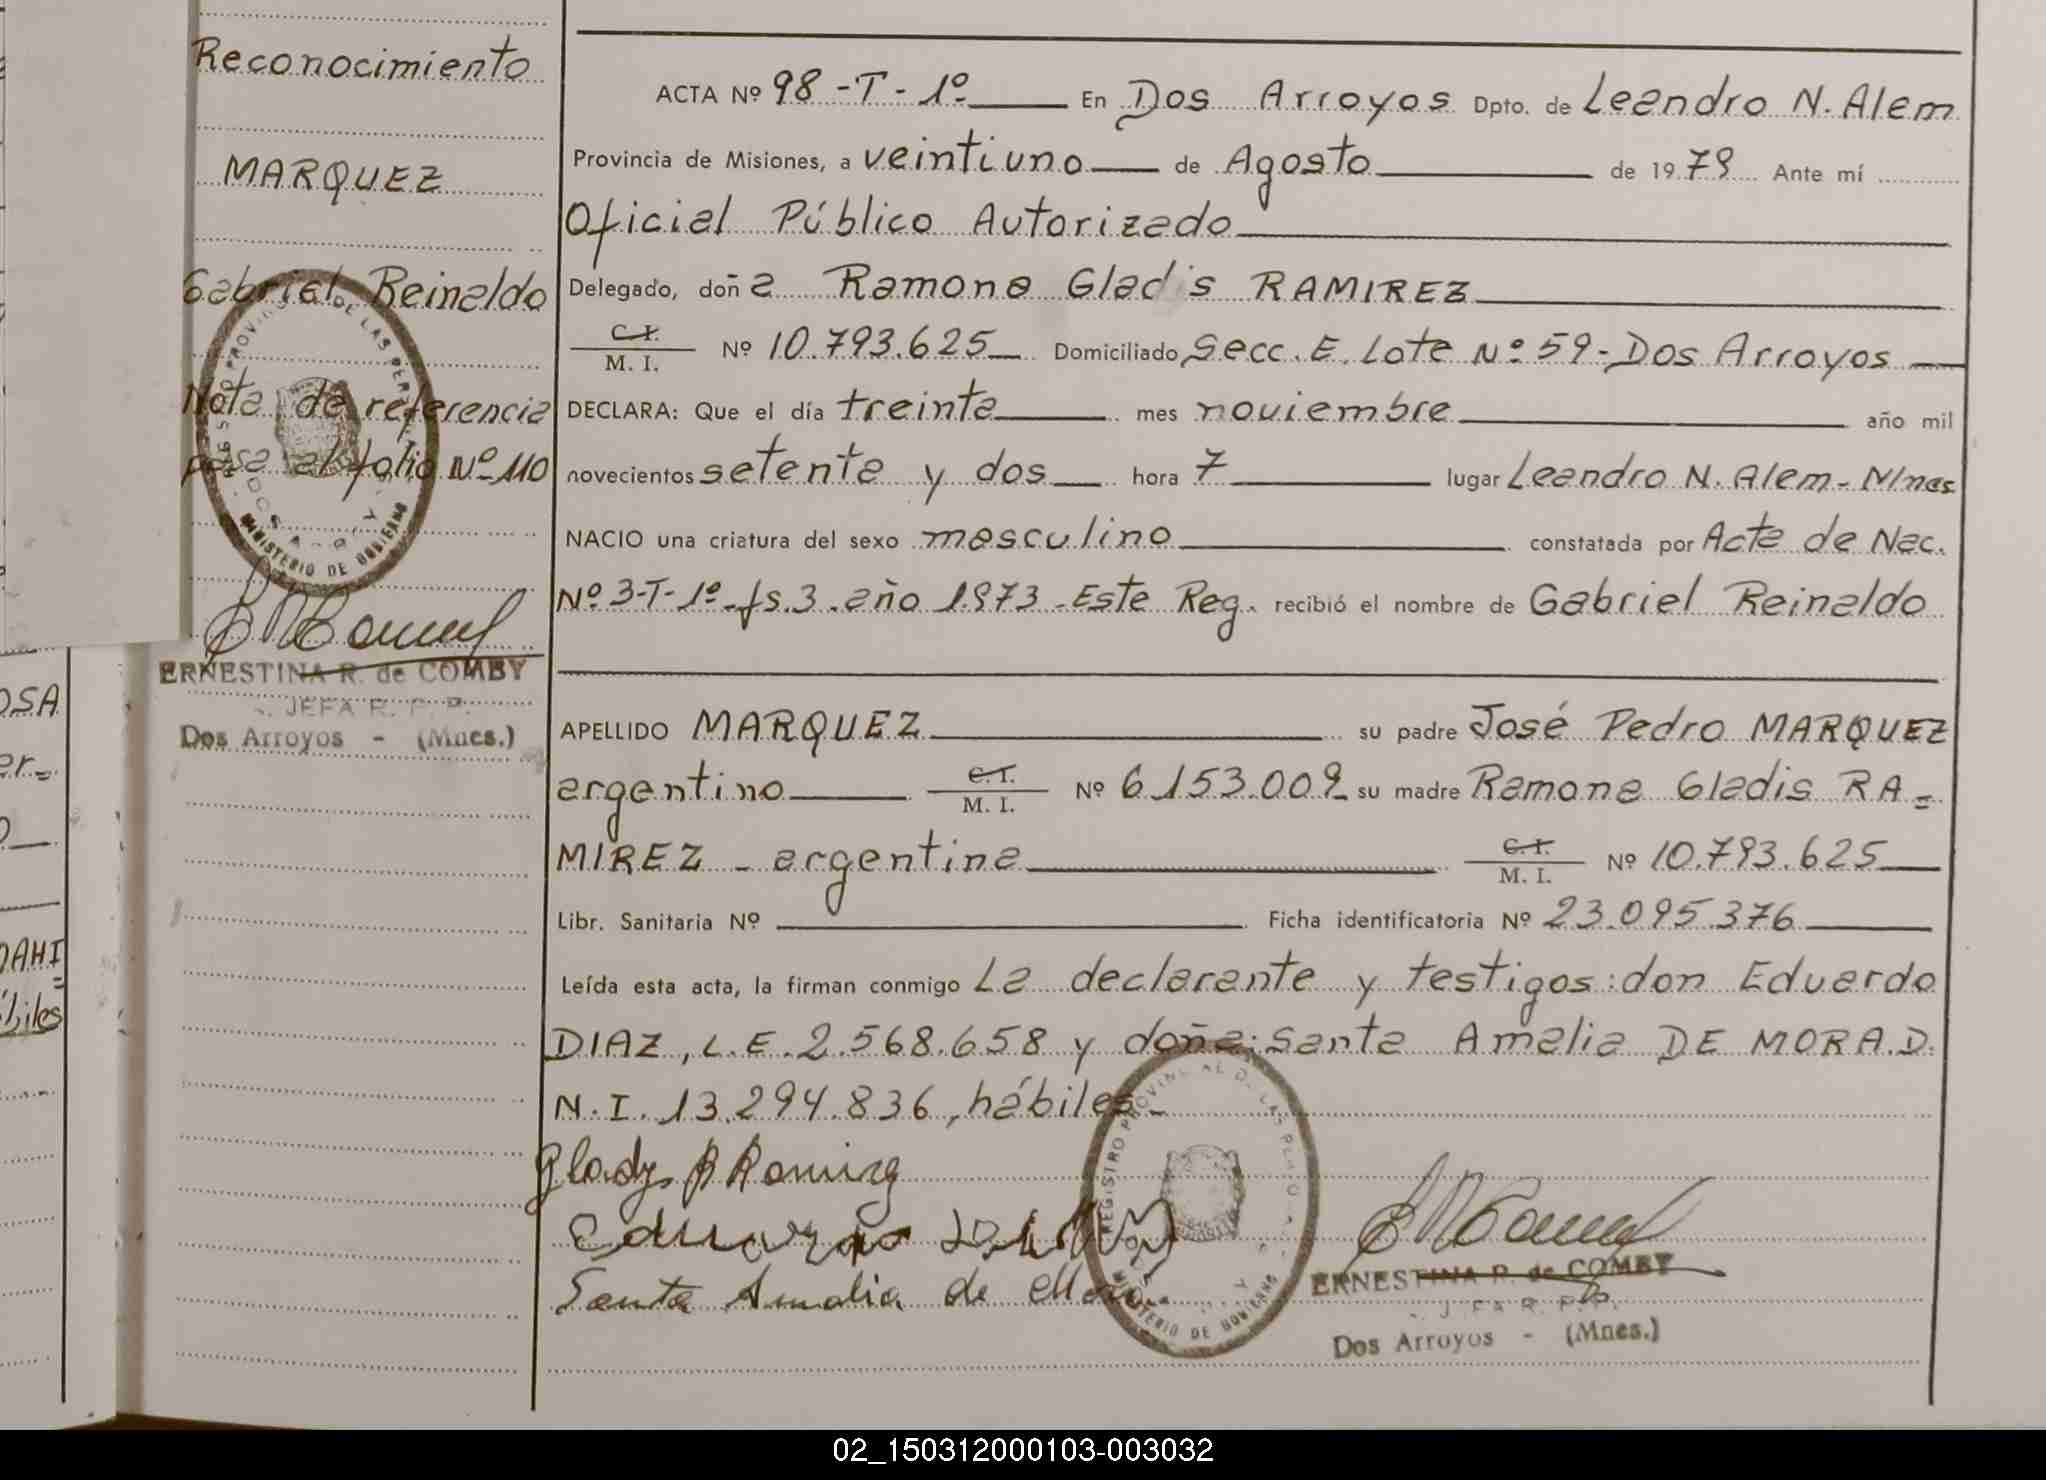 Reconocimiento
MARQUEZ
Gabriel Reinaldo
Nota de referencia
pasa al folio Nº 110
MINISTERIO DE GOBIERNO
ERNESTINA R. de COMBY
JEFA R. P. P.
Dos Arroyos - (Mnes.)
OSA
er=
DAHI
biles
ACTA Nº 98-T-1º En Dos Arroyos Dpto. de Leandro N. Alem
Provincia de Misiones, a veintiuno de Agosto de 1979 Ante mí
Oficial Público Autorizado
Delegado, doña Ramona Gladis RAMIREZ
C. I.
M. I. Nº 10.793.625 Domiciliado Secc. E. Lote Nº 59-Dos Arroyos
DECLARA: Que el día treinta mes noviembre año mil
novecientos setenta y dos hora 7 lugar Leandro N. Alem-Mnes
NACIO una criatura del sexo masculino constatada por Acta de Nac.
Nº 3-T-1º-fs.3.año 1973-Este Reg. recibió el nombre de Gabriel Reinaldo
APELLIDO MARQUEZ su padre José Pedro MARQUEZ
argentino C. I. M. I. Nº 6.153.009 su madre Ramona Gladis RA=
MIREZ - argentina C. I. M. I. Nº 10.793.625
Libr. Sanitaria Nº Ficha identificatoria Nº 23.095.376
Leída esta acta, la firman conmigo La declarante y testigos: don Eduardo
DIAZ, L.E. 2.568.658 y doña: Santa Amalia DE MORA.D.
N.I. 13.294.836, hábiles.-
Gladys R Ramirez
Eduardo Diaz
Santa Amalia de Mora
REGISTRO PROVINCIAL DE LAS PERSONAS
MINISTERIO DE GOBIERNO
ERNESTINA R. de COMBY
JEFA R. P. P.
Dos Arroyos - (Mnes.)
02_150312000103-003032